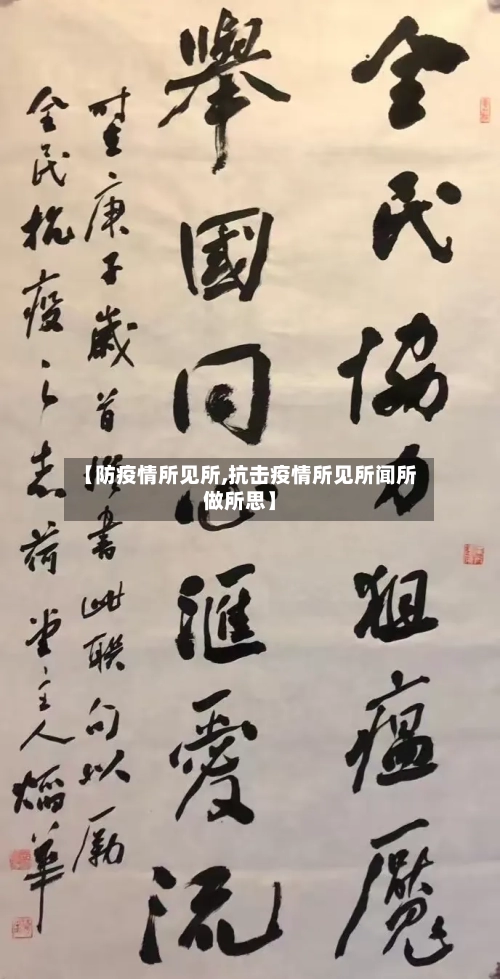 全民協力狙瘟魘
舉國同心滙愛流
时庚子歲首書此联句以励
全民抗疫之志荷堂主人華
【防疫情所见所,抗击疫情所见所闻所
做所思】